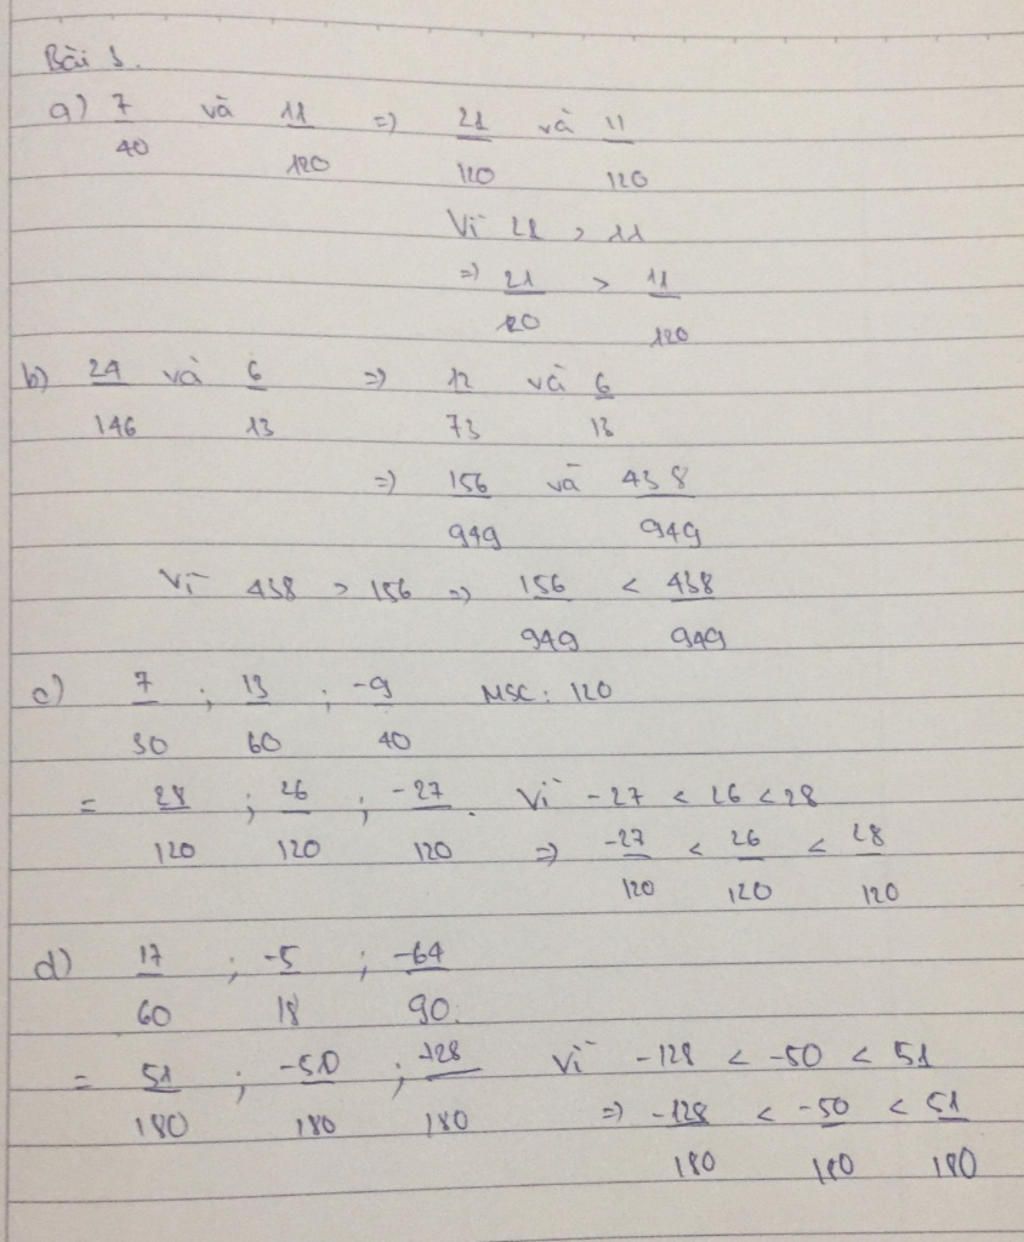 Bài 1.
a) 7/40 và 11/120 => 21/120 và 11/120
Vì 21 > 11
=> 21/120 > 11/120
b) 24/146 và 6/13 => 12/73 và 6/13
=> 156/949 và 438/949
Vì 438 > 156 => 156/949 < 438/949
c) 7/30 ; 13/60 ; -9/40 MSC: 120
= 28/120 ; 26/120 ; -27/120 . Vì -27 < 26 < 28
=> -27/120 < 26/120 < 28/120
d) 17/60 ; -5/18 ; -64/90.
= 51/180 ; -50/180 ; -128/180 Vì -128 < -50 < 51
=> -128/180 < -50/180 < 51/180